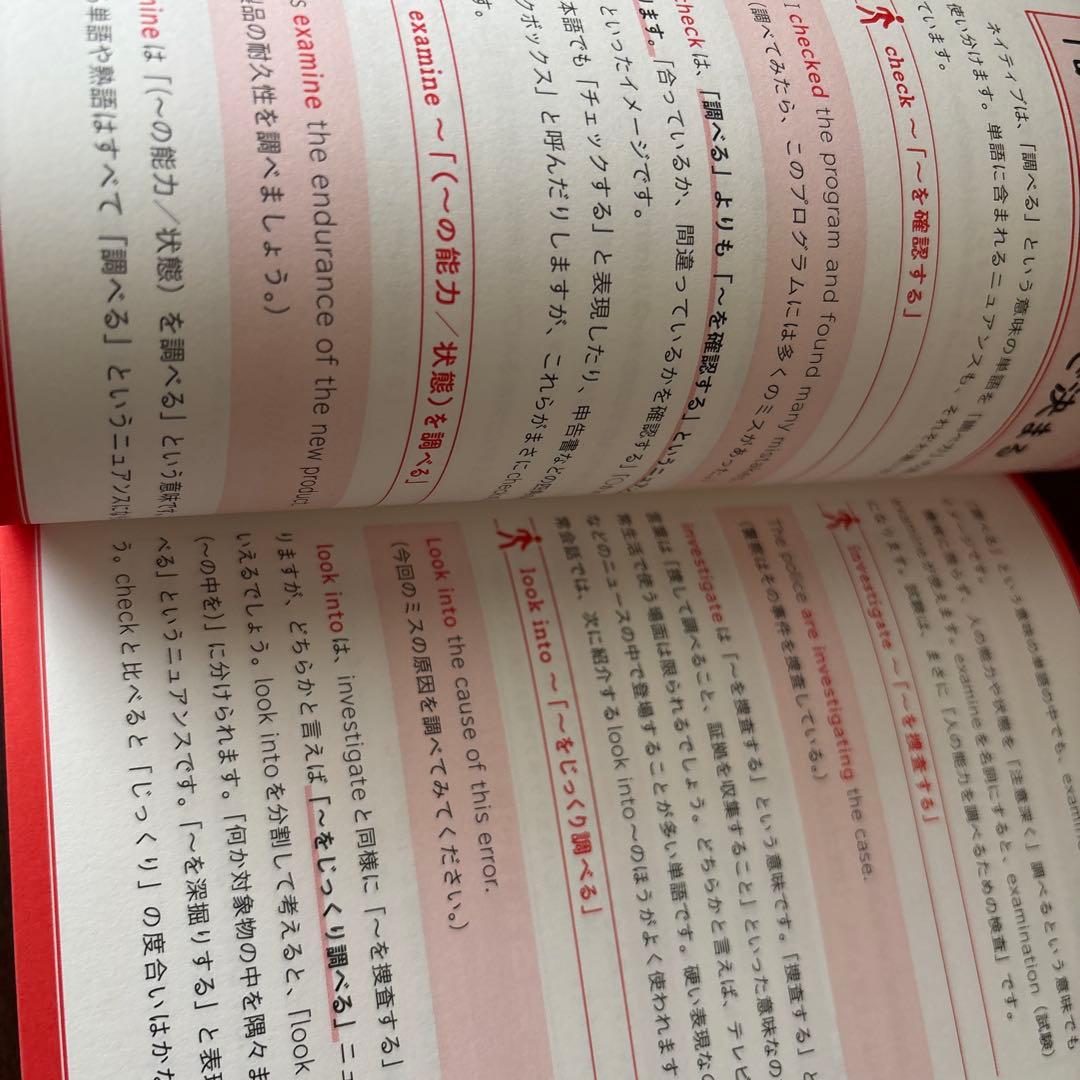 決まる
ネイティブは、「調べる」という意味の単語を
使い分けます。単語に含まれるニュアンスも、それぞれ
ています。
check ~「~を確認する」
I checked the program and found many mistakes
(調べてみたら、このプログラムには多くのミスがあった
checkは、「調べる」よりも「~を確認する」という
ます。「合っているか、間違っているかを確認する」
といったイメージです。
本語でも「チェックする」と表現したり、申告書などの
クボックス」と呼んだりしますが、これらがまさにcheck
す。
examine ~「(~の能力/状態)を調べる」
s examine the endurance of the new product
製品の耐久性を調べましょう。)
mineは「(~の能力/状態)を調べる」という意味です
単語や熟語はすべて「調べる」というニュアンスに
「調べる」という意味の単語の中でも、examine
イメージです。人の能力や状態を「注意深く」調べるという意味でも
examineを名詞にすると、examination(試験)
になります。試験は、まさに「人の能力を調べるための検査」です。
investigate ~「~を捜査する」
The police are investigating the case.
(警察はその事件を捜査している。)
investigateは「~を捜査する」という意味です。「捜査する」と
言葉は「捜して調べること、証拠を収集すること」といった意味なの
常生活で使う場面は限られるでしょう。どちらかと言えば、テレビ
などのニュースの中で登場することが多い単語です。硬い表現な
常会話では、次に紹介するlook into~のほうがよく使われます
look into ~「~をじっくり調べる」
Look into the cause of this error.
(今回のミスの原因を調べてみてください。)
look intoは、investigateと同様に「~を捜査する」
りますが、どちらかと言えば「~をじっくり調べる」ニュ
いえるでしょう。look intoを分割して考えると、「look
(~の中を)」に分けられます。「何か対象物の中を隅々ま
べる」というニュアンスです。「~を深掘りする」と表現
う。checkと比べると「じっくり」の度合いはかな